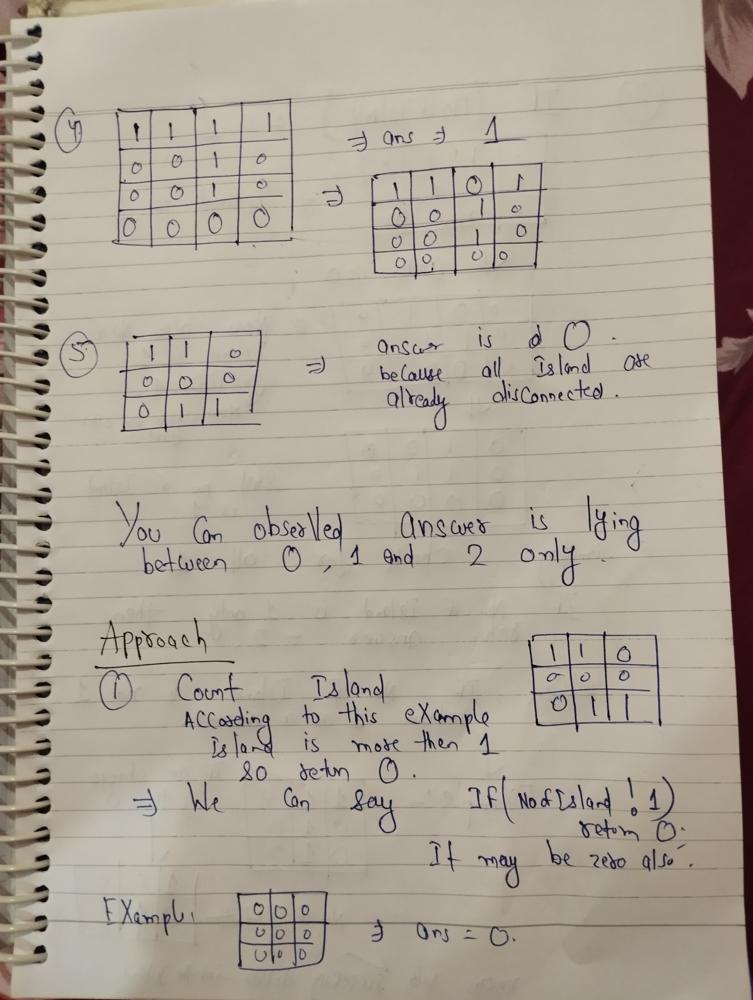 ④
1 1 1 1
0 0 1 0
0 0 1 0
0 0 0 0
⇒ ans ⇒ 1
⇒
1 1 0 1
0 0 1 0
0 0 1 0
0 0 0 0
⑤
1 1 0
0 0 0
0 1 1
⇒ answer is d 0.
because all Island are
already disconnected.
You Can observed answer is lying
between 0, 1 and 2 only.
Approach
① Count Island
According to this example
Island is more then 1
so return 0.
1 1 0
0 0 0
0 1 1
⇒ We Can say If (No of Island ! 1)
return 0.
It may be zero also.
Exampl:
0 0 0
0 0 0
0 0 0
⇒ ans = 0.